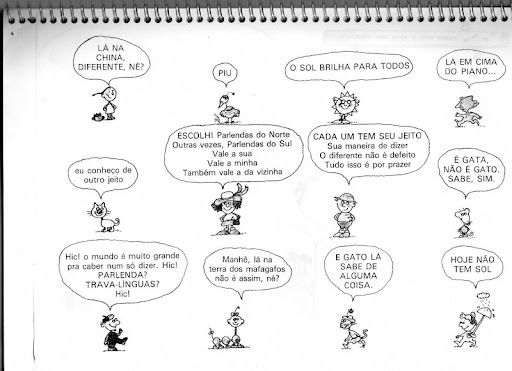 LÁ NA
CHINA,
DIFERENTE, NÉ?
PIU
O SOL BRILHA PARA TODOS
LÁ EM CIMA
DO PIANO...
eu conheço de
outro jeito
ESCOLHI Parlendas do Norte
Outras vezes, Parlendas do Sul
Vale a sua
Vale a minha
Também vale a da vizinha
CADA UM TEM SEU JEITO
Sua maneira de dizer
O diferente não é defeito
Tudo isso é por prazer
É GATA,
NÃO É GATO.
SABE, SIM.
Hic! o mundo é muito grande
pra caber num só dizer. Hic!
PARLENDA?
TRAVA-LÍNGUAS?
Hic!
Manhê, lá na
terra dos mafagafos
não é assim, né?
E GATO LÁ
SABE DE
ALGUMA
COISA.
HOJE NÃO
TEM SOL